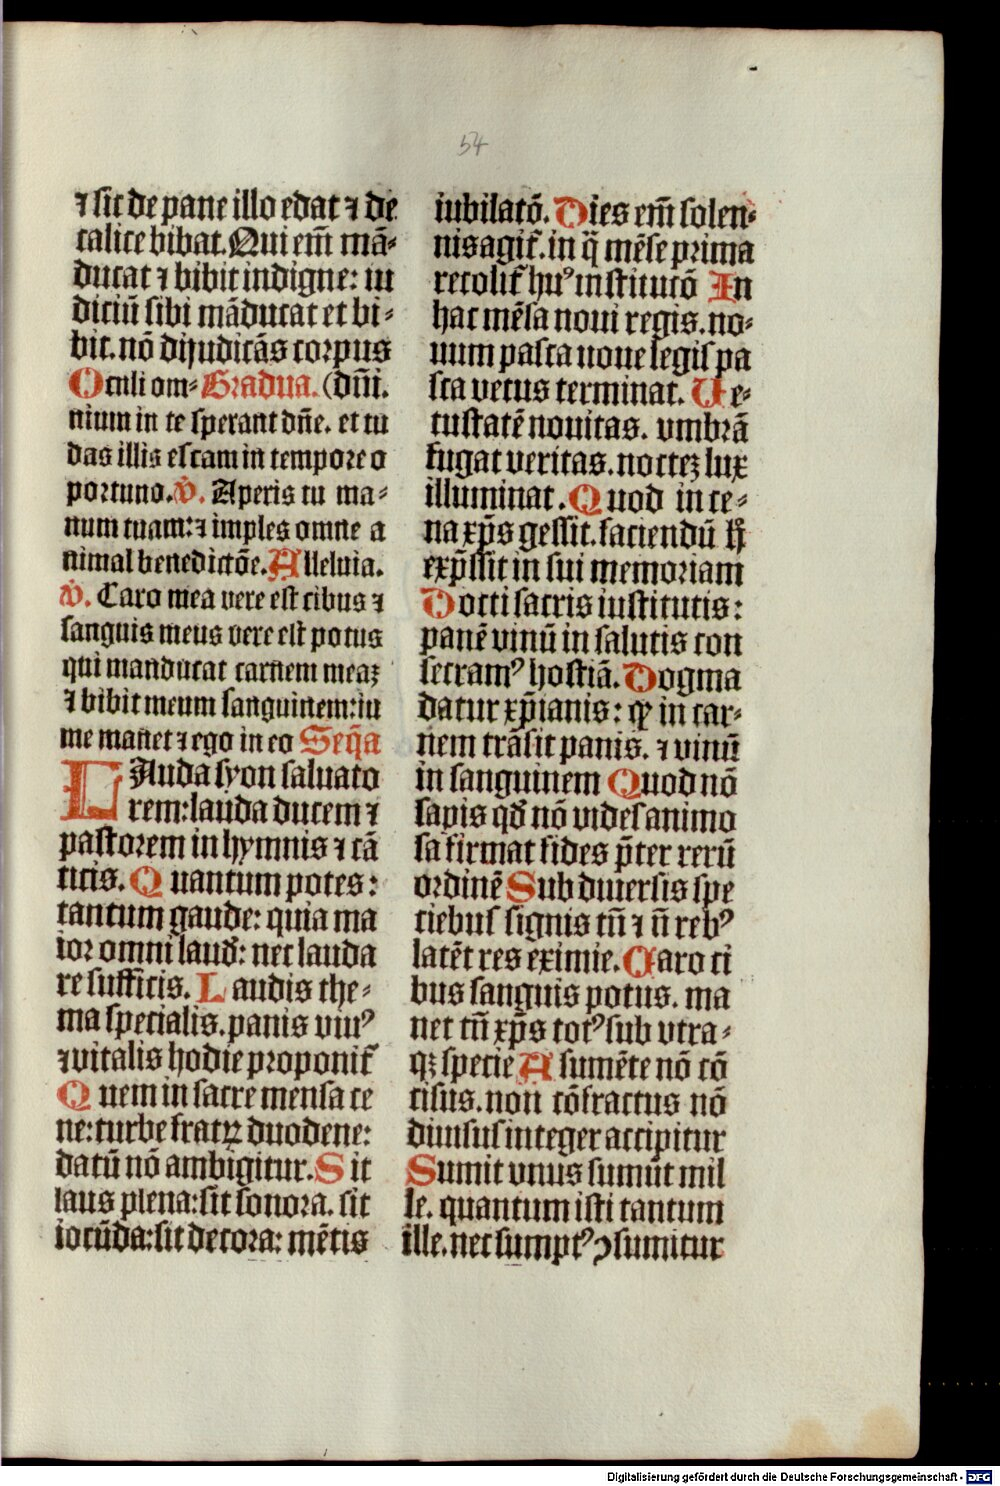 54
⁊ sit de pane illo edat ⁊ de
calice bibat. Qui em̄ mā-
ducat ⁊ bibit indigne: iu
diciū sibi māducat et bi-
bit. nō dijudicās corpus
Oculi om- Gradua. (dn̄i.
nium in te sperant dn̄e. et tu
das illis escam in tempore o
portuno. v̄. Aperis tu ma-
num tuam: ⁊ imples omne a
nimal benedictōe. Alleluia.
v̄. Caro mea vere est cibus ⁊
sanguis meus vere est potus
qui manducat carnem meaꝫ
⁊ bibit meum sanguinem: in
me manet ⁊ ego in eo Seq̄a
LAuda syon saluato
rem: lauda ducem ⁊
pastorem in hymnis ⁊ cā
ticis. Quantum potes:
tantum gaude: quia ma
ior omni laud̄: nec lauda
re sufficis. Laudis the-
ma specialis. panis viuꝰ
⁊ vitalis hodie proponit̄
Quem in sacre mensa ce
ne: turbe fratꝝ duodene:
datū nō ambigitur. Sit
laus plena: sit sonora. sit
iocūda: sit decora: mētis
iubilatō. Dies em̄ solen-
nis agit̄. in q̄ mēse prima
recolit̄ huꝰ institucō In
hac mēsa noui regis. no-
uum pasca noue legis pa
sca vetus terminat. Ve-
tustatē nouitas. vmbrā
fugat veritas. nocteꝫ lux
illuminat. Quod in ce-
na xp̄s gessit. faciendū h̄
exp̄ssit in sui memoriam
Docti sacris institutis:
panē vinū in salutis con
secramꝰ hostiā. Dogma
datur xp̄ianis: ꝙ in car-
nem trāsit panis. ⁊ vinū
in sanguinem Quod nō
capis qd̄ nō vides animo
sa firmat fides p̄ter rerū
ordinē Sub diuersis spe
ciebus signis tm̄ ⁊ n̄ rebꝰ
latēt res eximie. Caro ci
bus sanguis potus. ma
net tn̄ xp̄s totꝰ sub vtra-
qꝫ specie A sumēte nō cō
cisus. non cōfractus nō
diuisus integer accipitur
Sumit vnus sumūt mil
le. quantum isti tantum
ille. nec sumptꝰ ↄsumitur
Digitalisierung gefördert durch die Deutsche Forschungsgemeinschaft - DFG